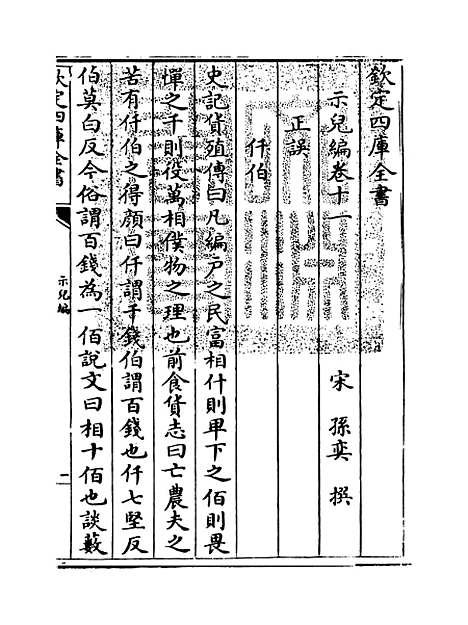 欽定四庫全書
示兒編卷十一
宋 孫奕 撰
正誤
仟伯
史記貨殖傳曰凡編户之民富相什則卑下之佰則畏
憚之千則役萬相僕物之理也前食貨志曰亡農夫之
苦有仟伯之得顔曰仟謂千錢伯謂百錢也仟七堅反
伯莫白反今俗謂百錢為一佰說文曰相十佰也談藪
欽定四庫全書
示兒編